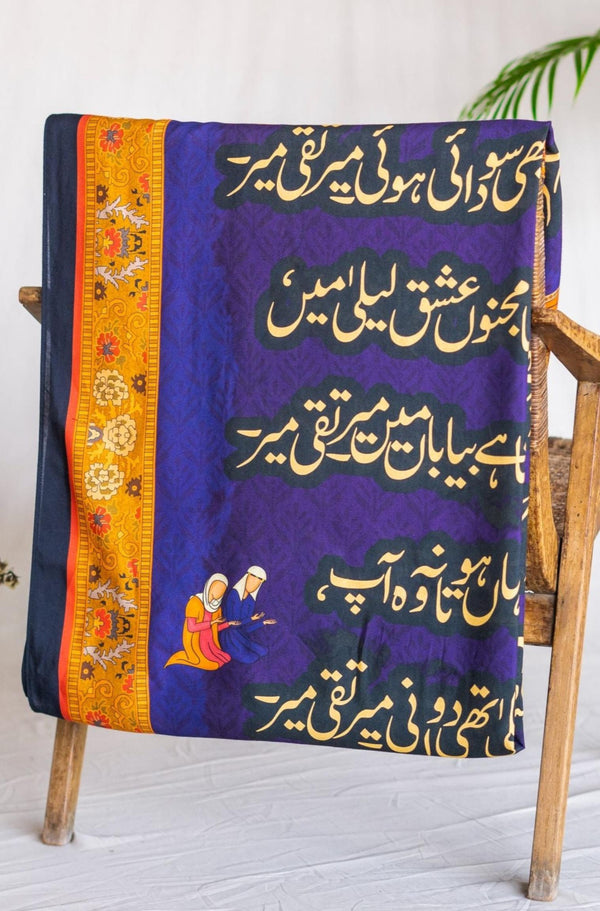 تھی سودائی ہوئی میر تقی میر۔
مجنوں عشق لیلیٰ میں،
ہے بیابان میں میر تقی میر۔
ہاں ہو تا نہ وہ آپ،
اٹھی دونی میر تقی میر۔